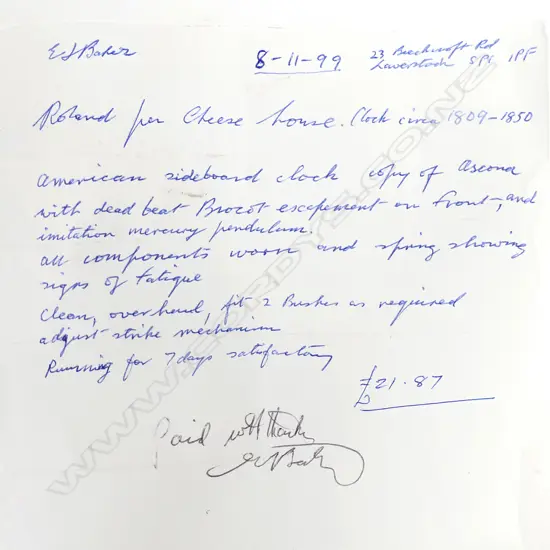 E J Baker
8-11-99
23 Beechcroft Rd
Laverstock SP1 1PF
Roland per Cheese house. Clock circa 1809-1850
American sideboard clock copy of Ascona
with dead beat Brocot escapement on front, and
imitation mercury pendulum.
all components worn and spring showing
signs of fatigue
Clean, overhaul, fit 2 Bushes as required
adjust strike mechanism
Running for 7 days satisfactory
£21.87
Paid with thanks
E J Baker